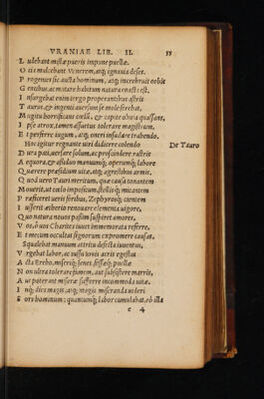 VRANIAE LIB. II. 15
L udebant mistæ pueris impune puellæ.
O tia mulcebant Venerem, atq; ignauia desес.
P rogenies sic aucta hominum, atq; increbruit orbis
G entibus, ac mutare habitum natura coacta est.
I nsurgebat enim tergo properantibus astris
T aurus, & ingenii auersum se mole ferebat,
M agitu horrificans coelū, & capite obuia quassans,
I pse atrox, tamen assuetus tolerare magistrum,
E t perferre iugum, atq; oneri insudare trahendo.
Hoc igitur regnante uiri didicere colendo
De Tauro
D ura pati, uersare solum, ac proscindere rastris
A equora, & assiduo manuumq; operumq; labore
Q uærere præsidium uitæ, atq; agrestibus armis.
Q uod uero Tauri meritum, quæ causa tonantem
M ouerit, ut coelo impositum, stellisq; micantem
P ræficeret ueris foribus, Zephyrosq; cientem
I usserit alterno renouare elementa uigore,
Q uo natura nouos passim susciperet amores,
V os, ô uos Charites iuuat immemorata referre,
E t mecum occuleas signorum expromere causas.
Squalebat manuum attritu defecta iuuentus,
V rgebat labor, ac iussu Iouis acris egestas
A cta Erebo, miseriq; senes, fessæq; puellæ
N on ultra tolerare famem, aut subsistere morris,
A ut poterant miseræ sufferre incommoda uitæ.
I nq; dies magis, atq; magis miseranda uideri
S ors hominum; quantumq; labor cumulabat, ob illa
c 4